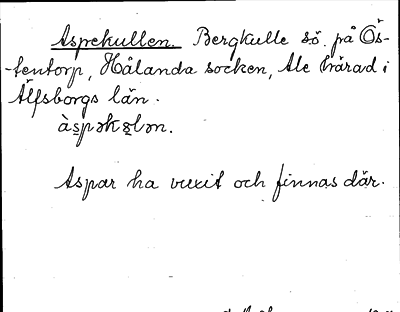 Aspekullen. Bergkulle sö. på Ös-
tentorp, Hålanda socken, Ale härad i
Älfsborgs län.
àspəkɷlən.
Aspar ha vuxit och finnas där.